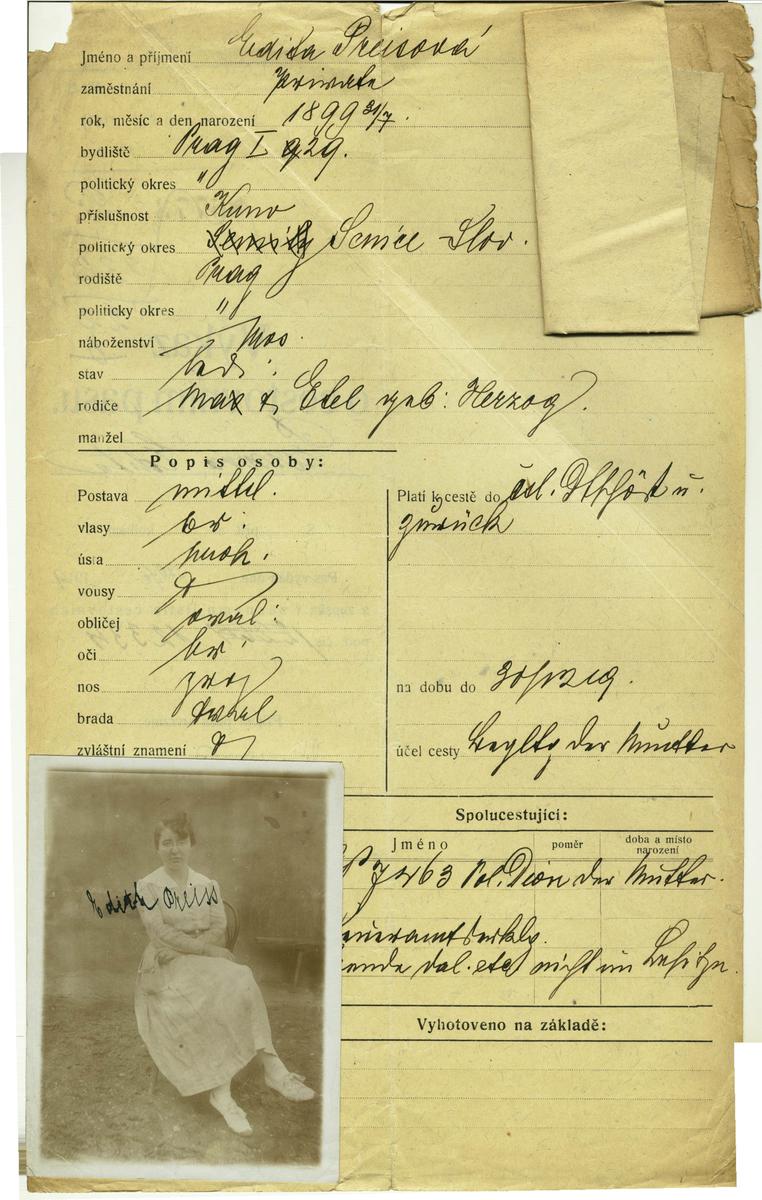 Jméno a příjmení Edita Preisová
zaměstnání Private
rok, měsíc a den narození 1899 31/7.
bydliště Prag I 929.
politický okres "
příslušnost Kuno
politický okres Senice Slov.
rodiště Prag
politicky okres "
náboženství mos.
stav led:
rodiče Max & Etel geb: Herzog.
manžel
Popis osoby:
Postava mittel.
vlasy br:
ústa
vousy
obličej oval:
oči br:
nos
brada
zvláštní znamení
Platí k cestě do u.
zurück
na dobu do
účel cesty der Mutter
Spolucestující:
Jméno poměr doba a místo narození
463 Pol. Dion der Mutter.
nicht im Besitze.
Vyhotoveno na základě:
Edith Preiss